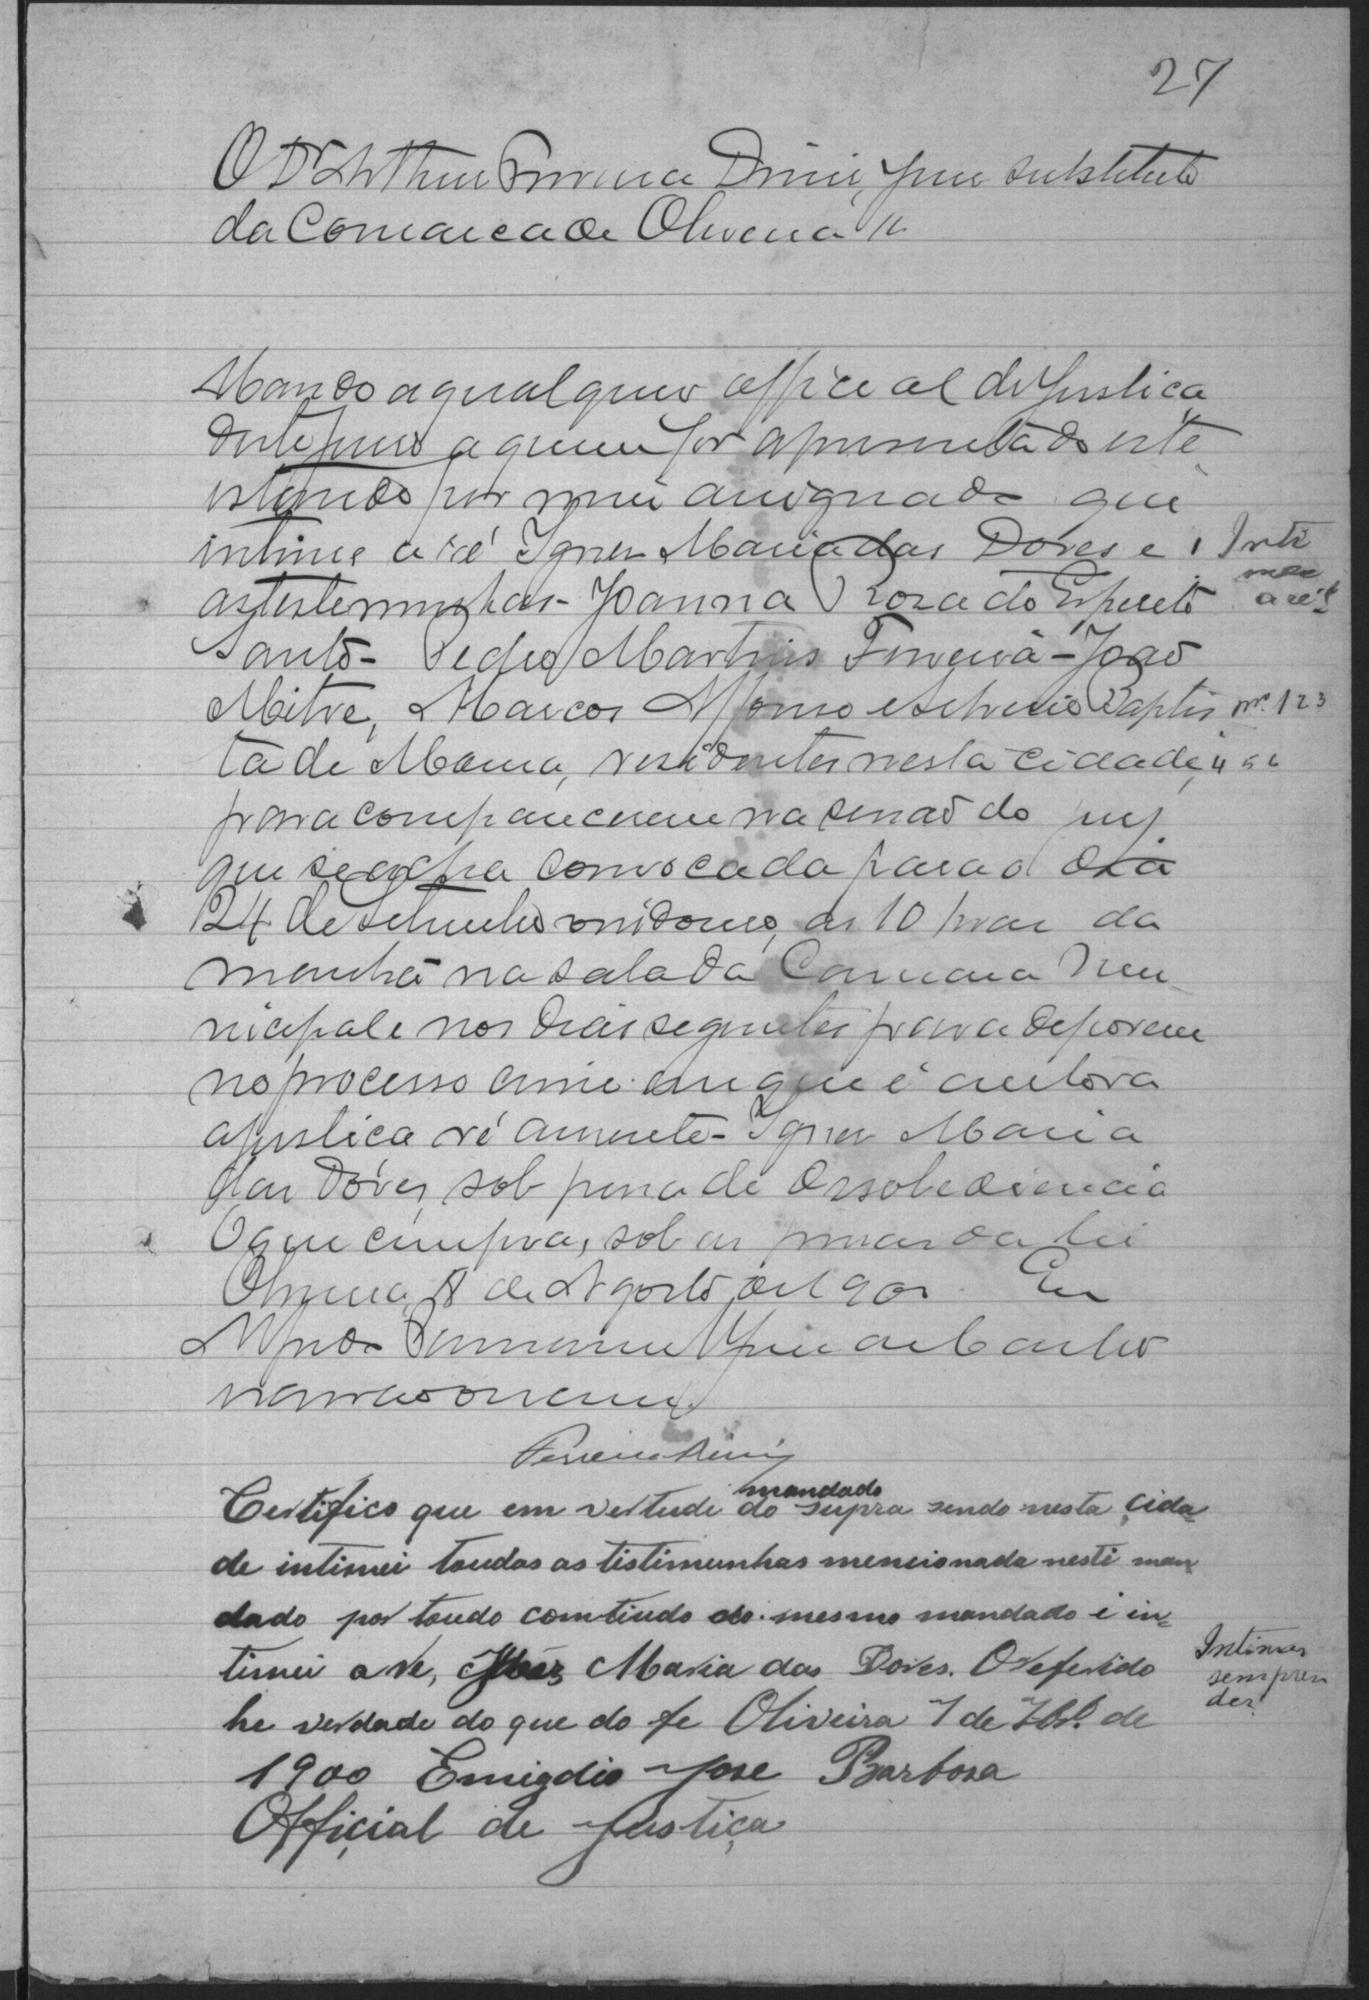 27
O Dr Arthur Ferreira Diniz, Juiz substituto
da Comarca de Oliveira
Mando a qualquer official de Justica
deste Juizo a quem for apresentado este
estando por mim assignado que
intime a ré Ignez Maria das Dores e
as testemunhas - Joanna Roza do Espirito
Santo - Pedro Martins Ferreira - João
Mitre, Marcos Affonso e Silverio Baptis
ta de Moura, residentes nesta cidade,
para comparecerem na sessao do jury
que se acha convocada para o dia
24 de Setembro vindouro, as 10 horas da
manhã na sala da Camara Mu
nicipal e nos dias seguintes para deporem
no processo crime em que é autora
a justica ré ausente - Ignez Maria
das Dores, sob pena de desobediencia
O que cumpra, sob as penas da lei
Oliveira, 8 de Agosto de 1900. Eu
escrevi
Ferreira Diniz
Inti
mese
a ré
nr. 1 2 3
Certifico que em vertude do mandado supra sendo nesta cida
de intimei toudas as tistimunhas mencionada nesti man
dado por toudo comtiudo do mesmo mandado i in=
timei a re, Ignez Maria das Dores. O referido
he verdade do que do fe Oliveira 7 de 7br. de
1900 Emigdio Jose Barbosa
Official de Justiça
Intimar
sem pren
der?